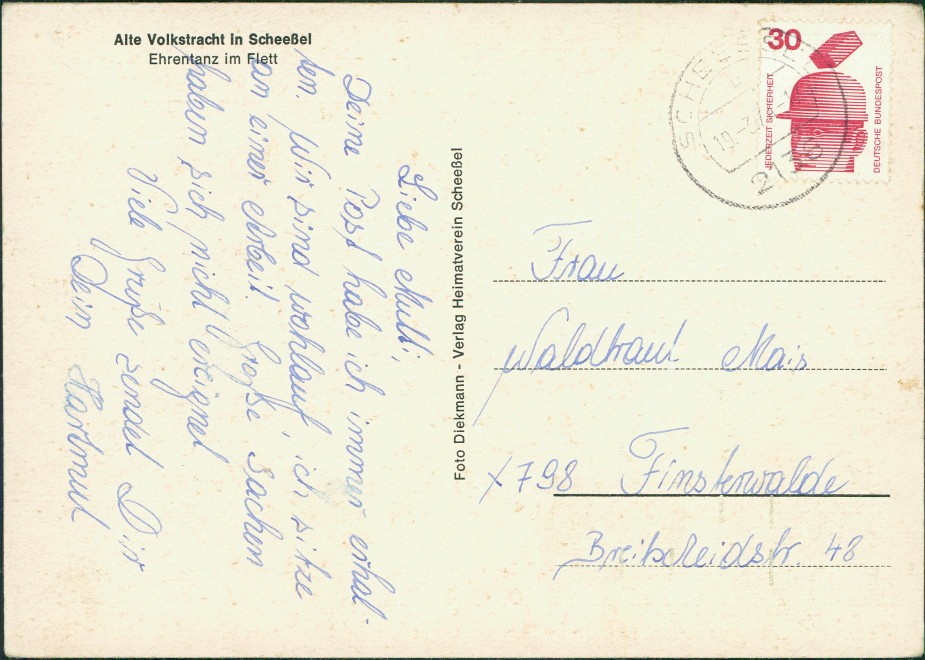 Alte Volkstracht in Scheeßel
Ehrentanz im Flett
Liebe Mutti,
Deine Post habe ich immer erhal-
ten. Wir sind wohlauf, ich sitze
an einer Arbeit. Große Sachen
haben sich nicht ereignet
Viele Grüße sendet Dir
Dein Hartmut
Foto Diekmann - Verlag Heimatverein Scheeßel
30
JEDERZEIT SICHERHEIT
DEUTSCHE BUNDESPOST
SCHEESSEL
Frau
Waldtraut Mais
X798 Finsterwalde
Breitscheidstr. 48